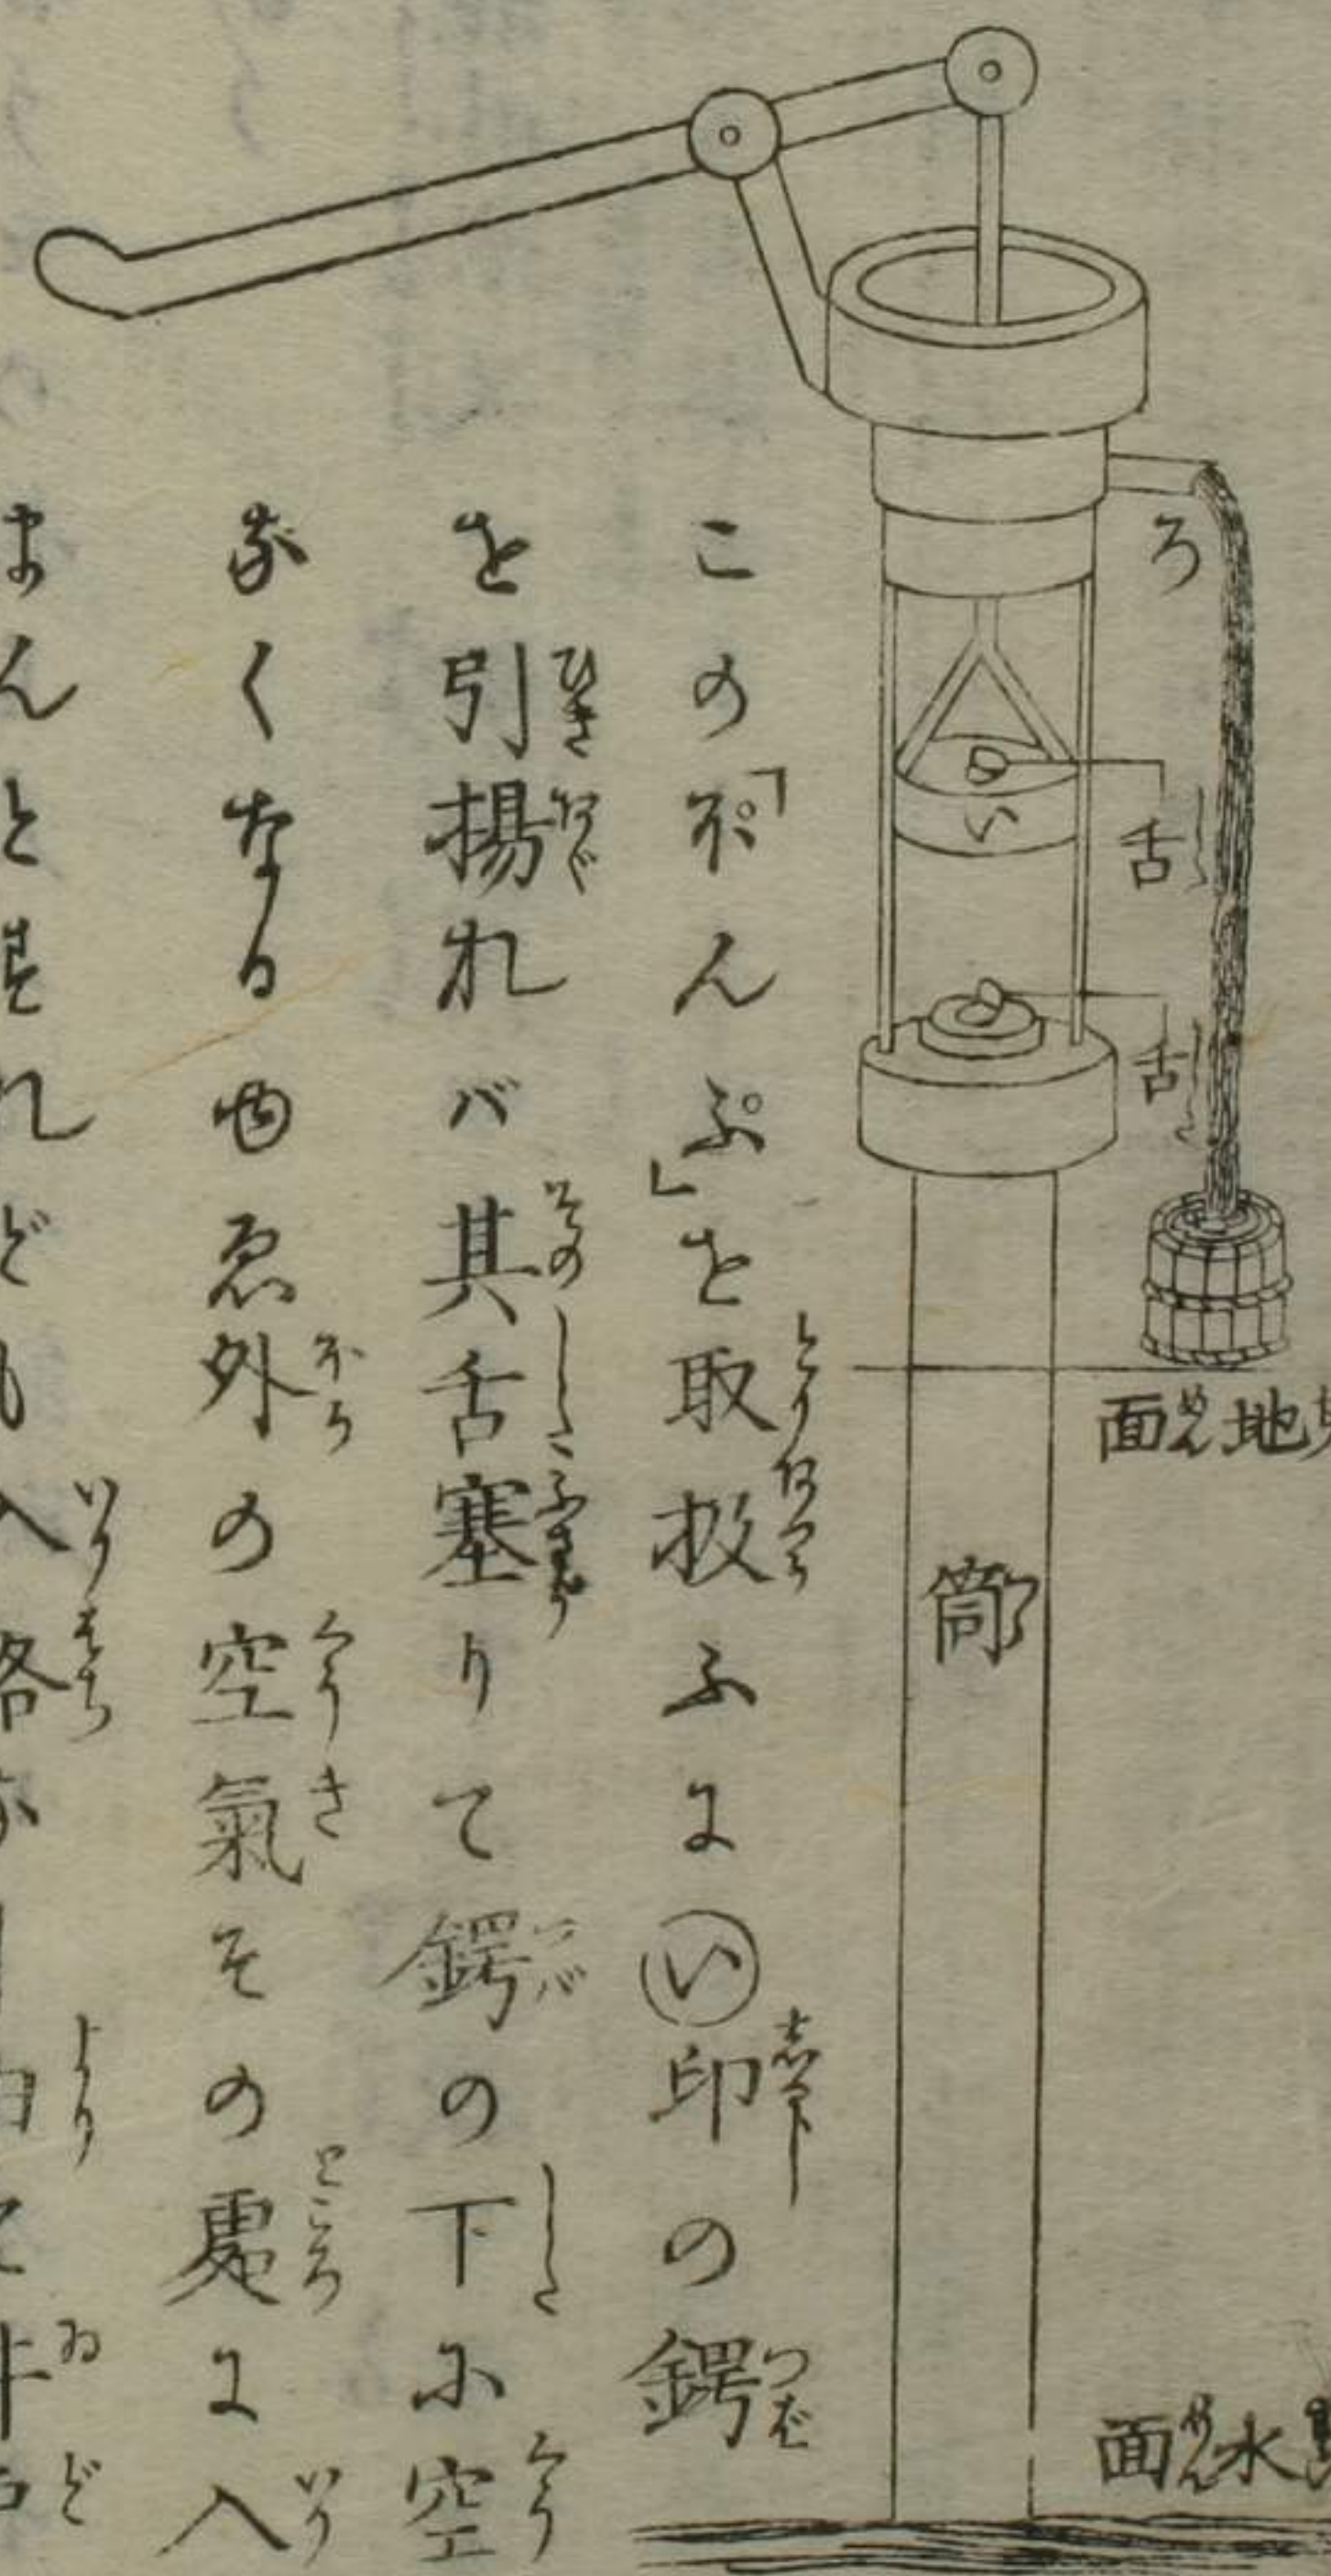 ろ
い
舌
舌
地面
筒
水面
この「ぽんぷ」を取扱ふに㋑印の鍔
を引揚れバ其舌塞りて鍔の下に空
なくなるゆゑ外の空氣その處に入
んとすれども入路なし由て井